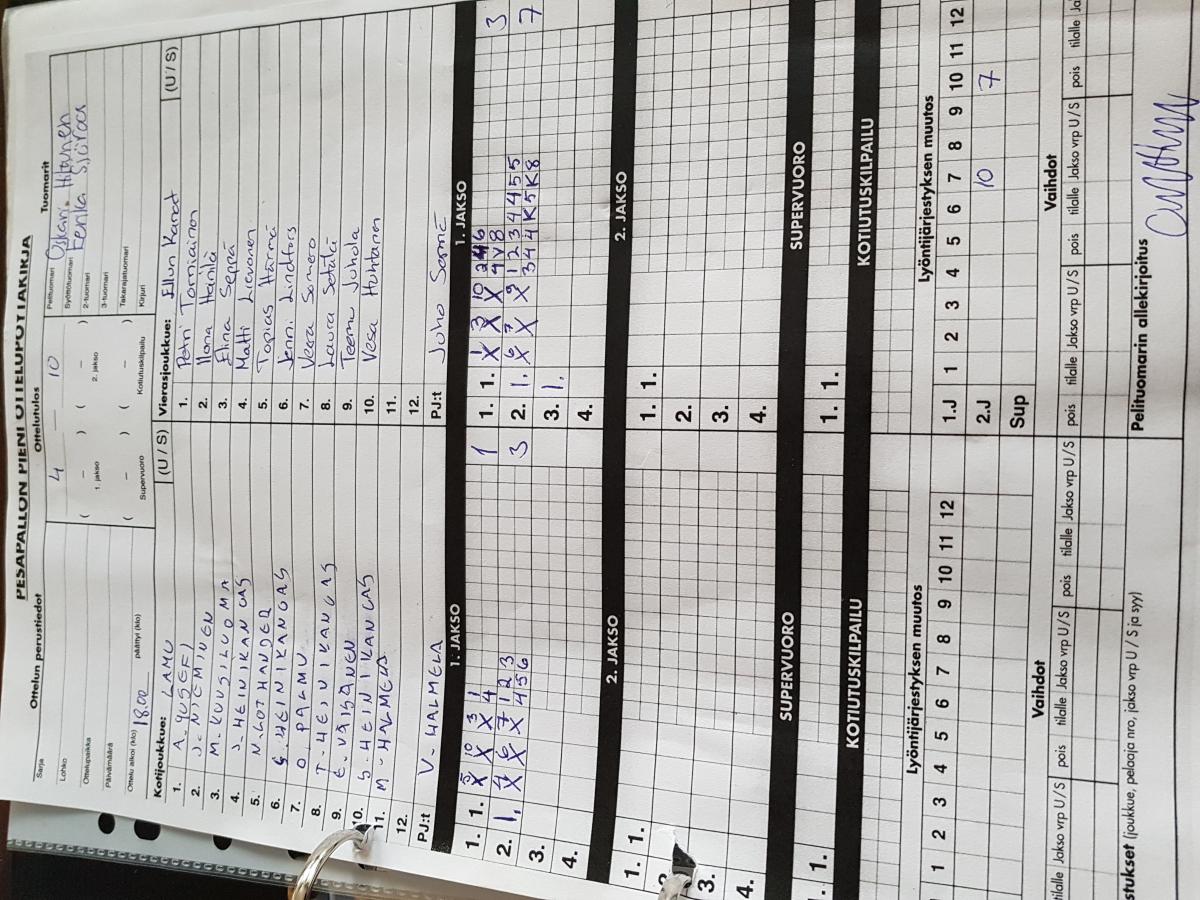 PESÄPALLON PIENI OTTELUPÖYTÄKIRJA
Ottelun perustiedot
Ottelutulos
Tuomarit
Sarja
4 — 10
Pelituomari Oskari Hitonen
Lohko
Syöttötuomari Eerika Sjöroos
Ottelupaikka
( – ) ( – )
2-tuomari
1. jakso 2. jakso
3-tuomari
Päivämäärä
( – ) ( – )
Takarajatuomari
Ottelu alkoi (klo) 18.00 päättyi (klo)
Supervuoro Kotiutuskilpailu
Kirjuri
Kotijoukkue: LAMU (U / S)
1. A. YUSEFI
2. J. NIEMINEN
3. M. KUUSILUOMA
4. J. HEINIKANGAS
5. N. LOTHANDER
6. G. HEINIKANGAS
7. O. PALMU
8. T. HEINIKANGAS
9. E. VÄISÄNEN
10. S. HEINIKANGAS
11. M. HALMELA
12.
PJ:t V. HALMELA
Vierasjoukkue: Ellun Kanat (U / S)
1. Petri Torniainen
2. Ilona Heinilä
3. Elina Seppä
4. Matti Lievonen
5. Topias Härmä
6. Jenni Lindfors
7. Veera Somero
8. Laura Setälä
9. Teemu Juhola
10. Vesa Huhtanen
11.
12.
PJ:t Juho Samé
1. JAKSO
1. JAKSO
1. 1.
1
1. 1.
3
2. 1.
3
2. 1.
7
3.
3. 1.
4.
4.
2. JAKSO
2. JAKSO
1. 1.
1. 1.
2.
2.
3.
3.
4.
4.
SUPERVUORO
SUPERVUORO
1. 1.
1. 1.
KOTIUTUSKILPAILU
KOTIUTUSKILPAILU
Lyöntijärjestyksen muutos
Lyöntijärjestyksen muutos
1 2 3 4 5 6 7 8 9 10 11 12
1.J 1 2 3 4 5 6 7 8 9 10 11 12
2.J 10 7
Sup
Vaihdot
Vaihdot
tilalle Jakso vrp U / S pois tilalle Jakso vrp U / S pois tilalle Jakso vrp U / S
pois tilalle Jakso vrp U / S pois tilalle Jakso vrp U / S pois tilalle
stukset (joukkue, pelaaja nro, jakso vrp U / S ja syy)
Pelituomarin allekirjoitus